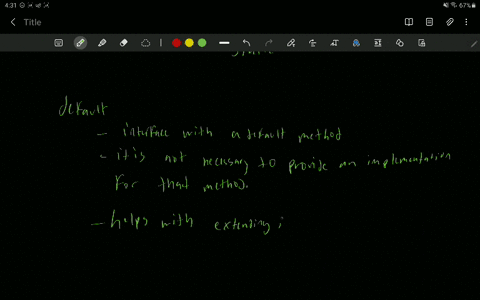 4:31
67%
Title
default
- interface with a default method
- it is not necessary to provide an implementation
for that method.
- helps with extending i